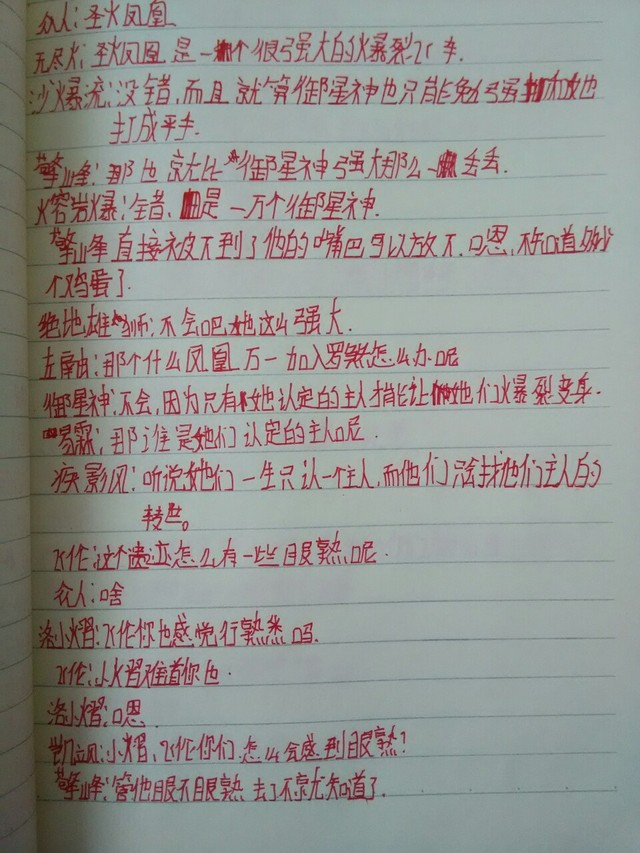 众人：圣火凤凰
无尽火：圣火凤凰是一个很强大的火暴裂飞车
沙暴流：没错，而且就算御星神也只能勉强和她也
打成平手.
擎峰：那也就比御星神强大那么一丢丢.
火窑岩爆：错、是一万个御星神.
擎峰直接被不到了他的嘴巴可以放下.口恩，不知道多少
个鸡蛋了.
绝地雄狮：不会吧她这么强大.
左南由：那个什么凤凰万一加入罗煞怎么办呢
御星神：不会，因为只有她认定的主人才能让她们火暴裂变身.
易霖：那谁是她们认定的主人呢.
疾影风：听说她们一生只认一个主人，而他们只会找他们主人的
转世。
飞作：这个遗迹怎么有一些眼熟呢.
众人：啥
洛小熠：飞作你也感觉行熟悉吗.
飞作：小熠难道你也.
洛小熠：口恩.
凯风：小熠、飞作你们怎么会感到眼熟？
擎峰：管他眼不眼熟 去了不就知道了.